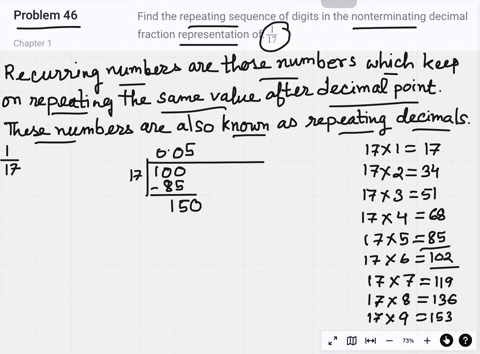 Problem 46
Chapter 1
Find the repeating sequence of digits in the nonterminating decimal
fraction representation of 1/17
Recurring numbers are those numbers which keep
on repeating the same value after decimal point.
These numbers are also known as repeating decimals.
1/17
0.05
17
100
-85
150
17×1=17
17×2=34
17×3=51
17×4=68
17×5=85
17×6=102
17×7=119
17×8=136
17×9=153
73%